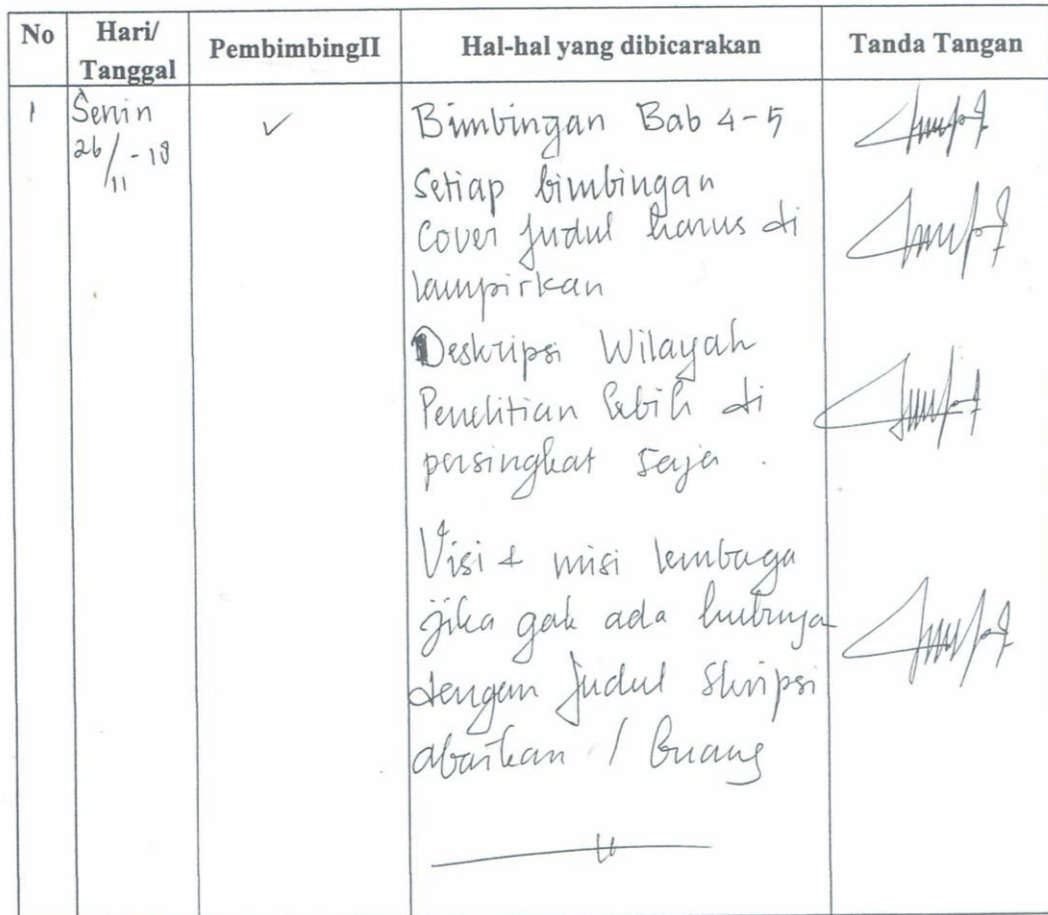 No Hari/ Tanggal PembimbingII Hal-hal yang dibicarakan Tanda Tangan
1 Senin ✓ Bimbingan Bab 4-5
26/11-18
Setiap bimbingan
Cover judul harus di
lampirkan
Deskripsi Wilayah
Penelitian lebih di
persingkat saja.
Visi + misi lembaga
jika gak ada hubnya
dengan judul skripsi
abaikan / buang